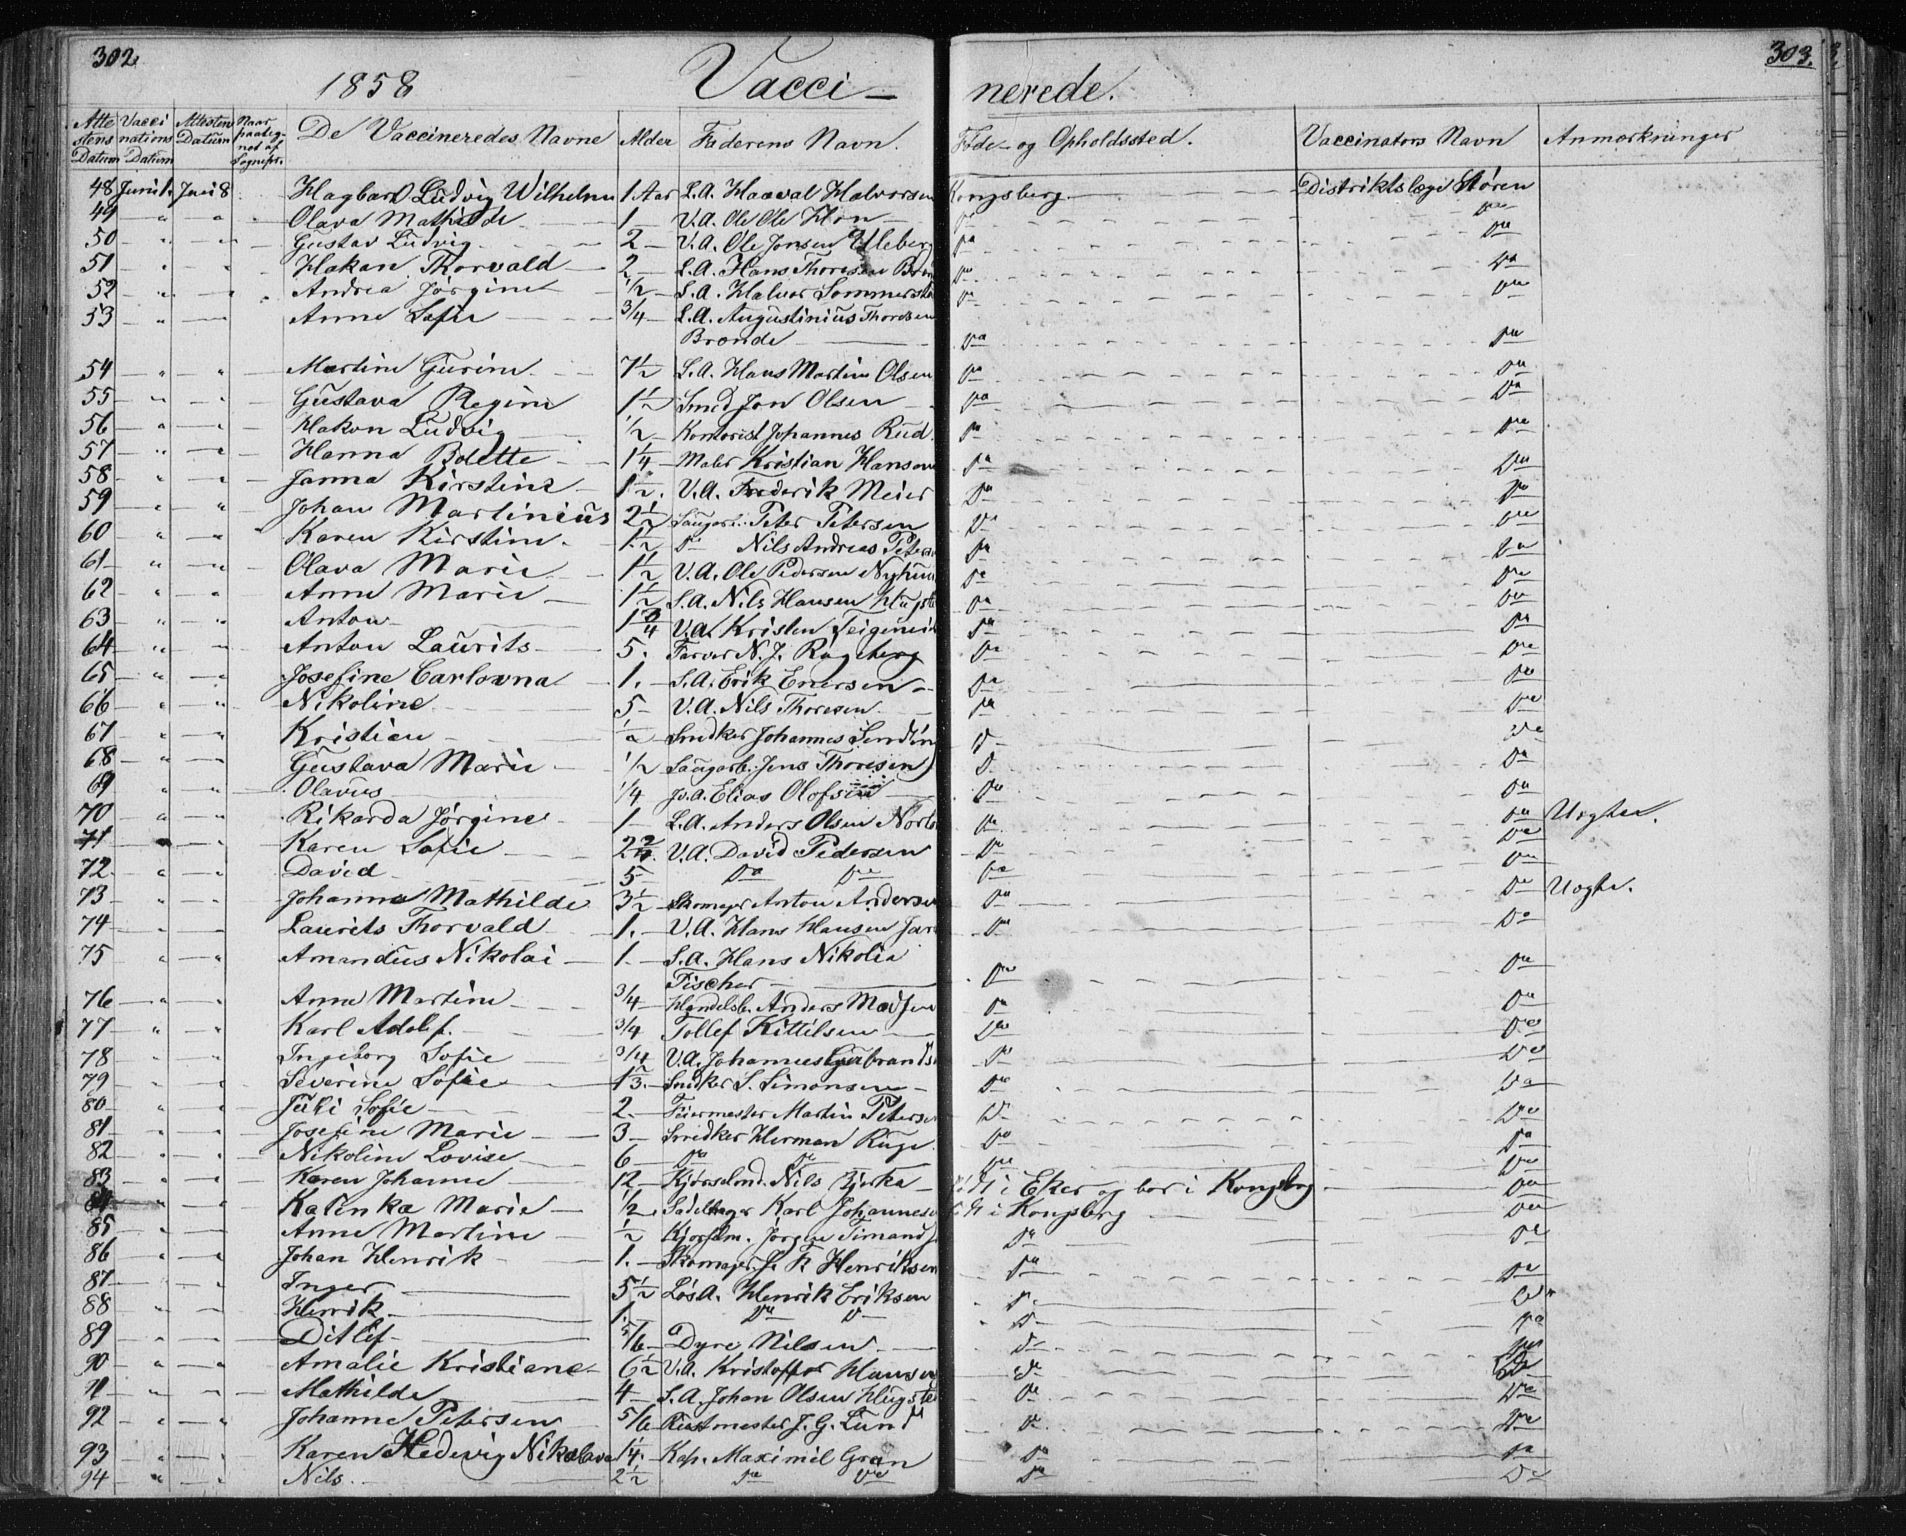 302.
303.
1858
Vacci-
nerede.
Atte stens Datum
Vacci nations Datum
Attestens Datum
Naar paateg- net af Sognepr.
De Vaccineredes Navne
Alder
Faderens Navn.
Føde- og Opholdssted.
Vaccinators Navn
Anmærkninger
48 Juni 1. Juni 8 Hagbart Ludvig Wilhelm 1 Aar S.A. Haaval Halvorsen Kongsberg Distriktslæge Støren
49 " " Olava Mathilde 1 V.A. Ole Ole Do Do
50 " " Gustav Ludvig 2 V.A. Ole Jonsen Do Do
51 " " Hakan Thorvald 2 S.A. Hans Thoresen Do Do
52 " " Andrea Jørgine 1/2 S.A. Halvor Do Do
53 " " Anne Sofie 3/4 S.A. Augustinius Thoresen
Bronde Do Do
54 " " Martin Gurine 7 1/2 S.A. Hans Martin Olsen Do Do
55 " " Gustava Regine 1 1/2 Smed Jon Olsen Do Do
56 " " Hakon Ludvig 1/2 Kontorist Johannes Rud Do Do
57 " " Hanna Bolette 1 1/4 Maler Kristian Hansen Do Do
58 " " Janna Kirstine 1 1/2 V.A. Frederik Meier Do Do
59 " " Johan Martinius 2 1/2 Saugarb. Peter Petersen Do Do
60 " " Karen Kirstine 1 1/2 Do Nils Andreas Do Do
61 " " Olava Marie 1 1/2 V.A. Ole Pedersen Do Do
62 " " Anne Marie 1 1/2 S.A. Nils Hansen Do Do
63 " " Anton 1 3/4 V.A. Kristen Do Do
64 " " Anton Laurits 5 Farver N. J. Do Do
65 " " Josefine Carlovna 1. S.A. Erik Enersen Do Do
66 " " Nikoline 5 V.A. Nils Thoresen Do Do
67 " " Kristian 1/2 Snedker Johannes Do Do
68 " " Gustava Marie 1/2 Saugarb. Jens Thoresen Do Do
69 " " Olavus 1/4 Elias Olofsen Do Do
70 " " Rikarda Jørgine 1 S.A. Anders Olsen Do Do Uægte.
71 " " Karen Sofie 2 V.A. David Pedersen Do Do
72 " " David 5 Do Do Do Do
73 " " Johanne Mathilde 3 1/2 Skomager Anton Andersen Do Do Uægte.
74 " " Laurits Thorvald 1. V.A. Hans Hansen Do Do
75 " " Amandus Nikolai 1 S.A. Hans Nikolia
Fischer Do Do
76 " " Anna Martine 3/4 Handelsb. Anders Madsen Do Do
77 " " Karl Adolf. 3/4 Tollef Kittilsen Do Do
78 " " Ingeborg Sofie 3/4 V.A. Johannes Do Do
79 " " Severine Sofie Snedker S. Simonsen Do Do
80 " " Juli Sofie 2. Feiermester Martin Petersen Do Do
81 " " Josefine Marie 3 Snedker Herman Ruge Do Do
82 " " Nikoline Lovise 6 Do Do Do Do
83 " " Karen Johanne 12 Nils Bjerka Født i Eker og bor i Kongsberg Do
84 " " Katinka Marie 1/2 Sadelmager Karl Johannesen Født i Kongsberg Do
85 " " Anne Martine 1/2 Jørgen Do Do
86 " " Johan Henrik 1. Skomager Henriksen Do Do
87 " " Inger 5 1/2 Løs A. Henrik Eriksen Do Do
88 " " Henrik 1. Do Do Do Do
89 " " Ditlef 5/6 Dyre Nilsen Do Do
90 " " Amalie Kristiane 6 1/2 V.A. Kristoffer Hansen Do Do
91 " " Mathilde 4 S.A. Johan Olsen Do Do
92 " " Johanne Petersen 5/6 Rustmester J. G. Lund Do Do
93 " " Karen Hedevig Nikolava 1/4 Kap. Maximil Gran Do Do
94 " " Nils 2 1/2 Do Do Do Do